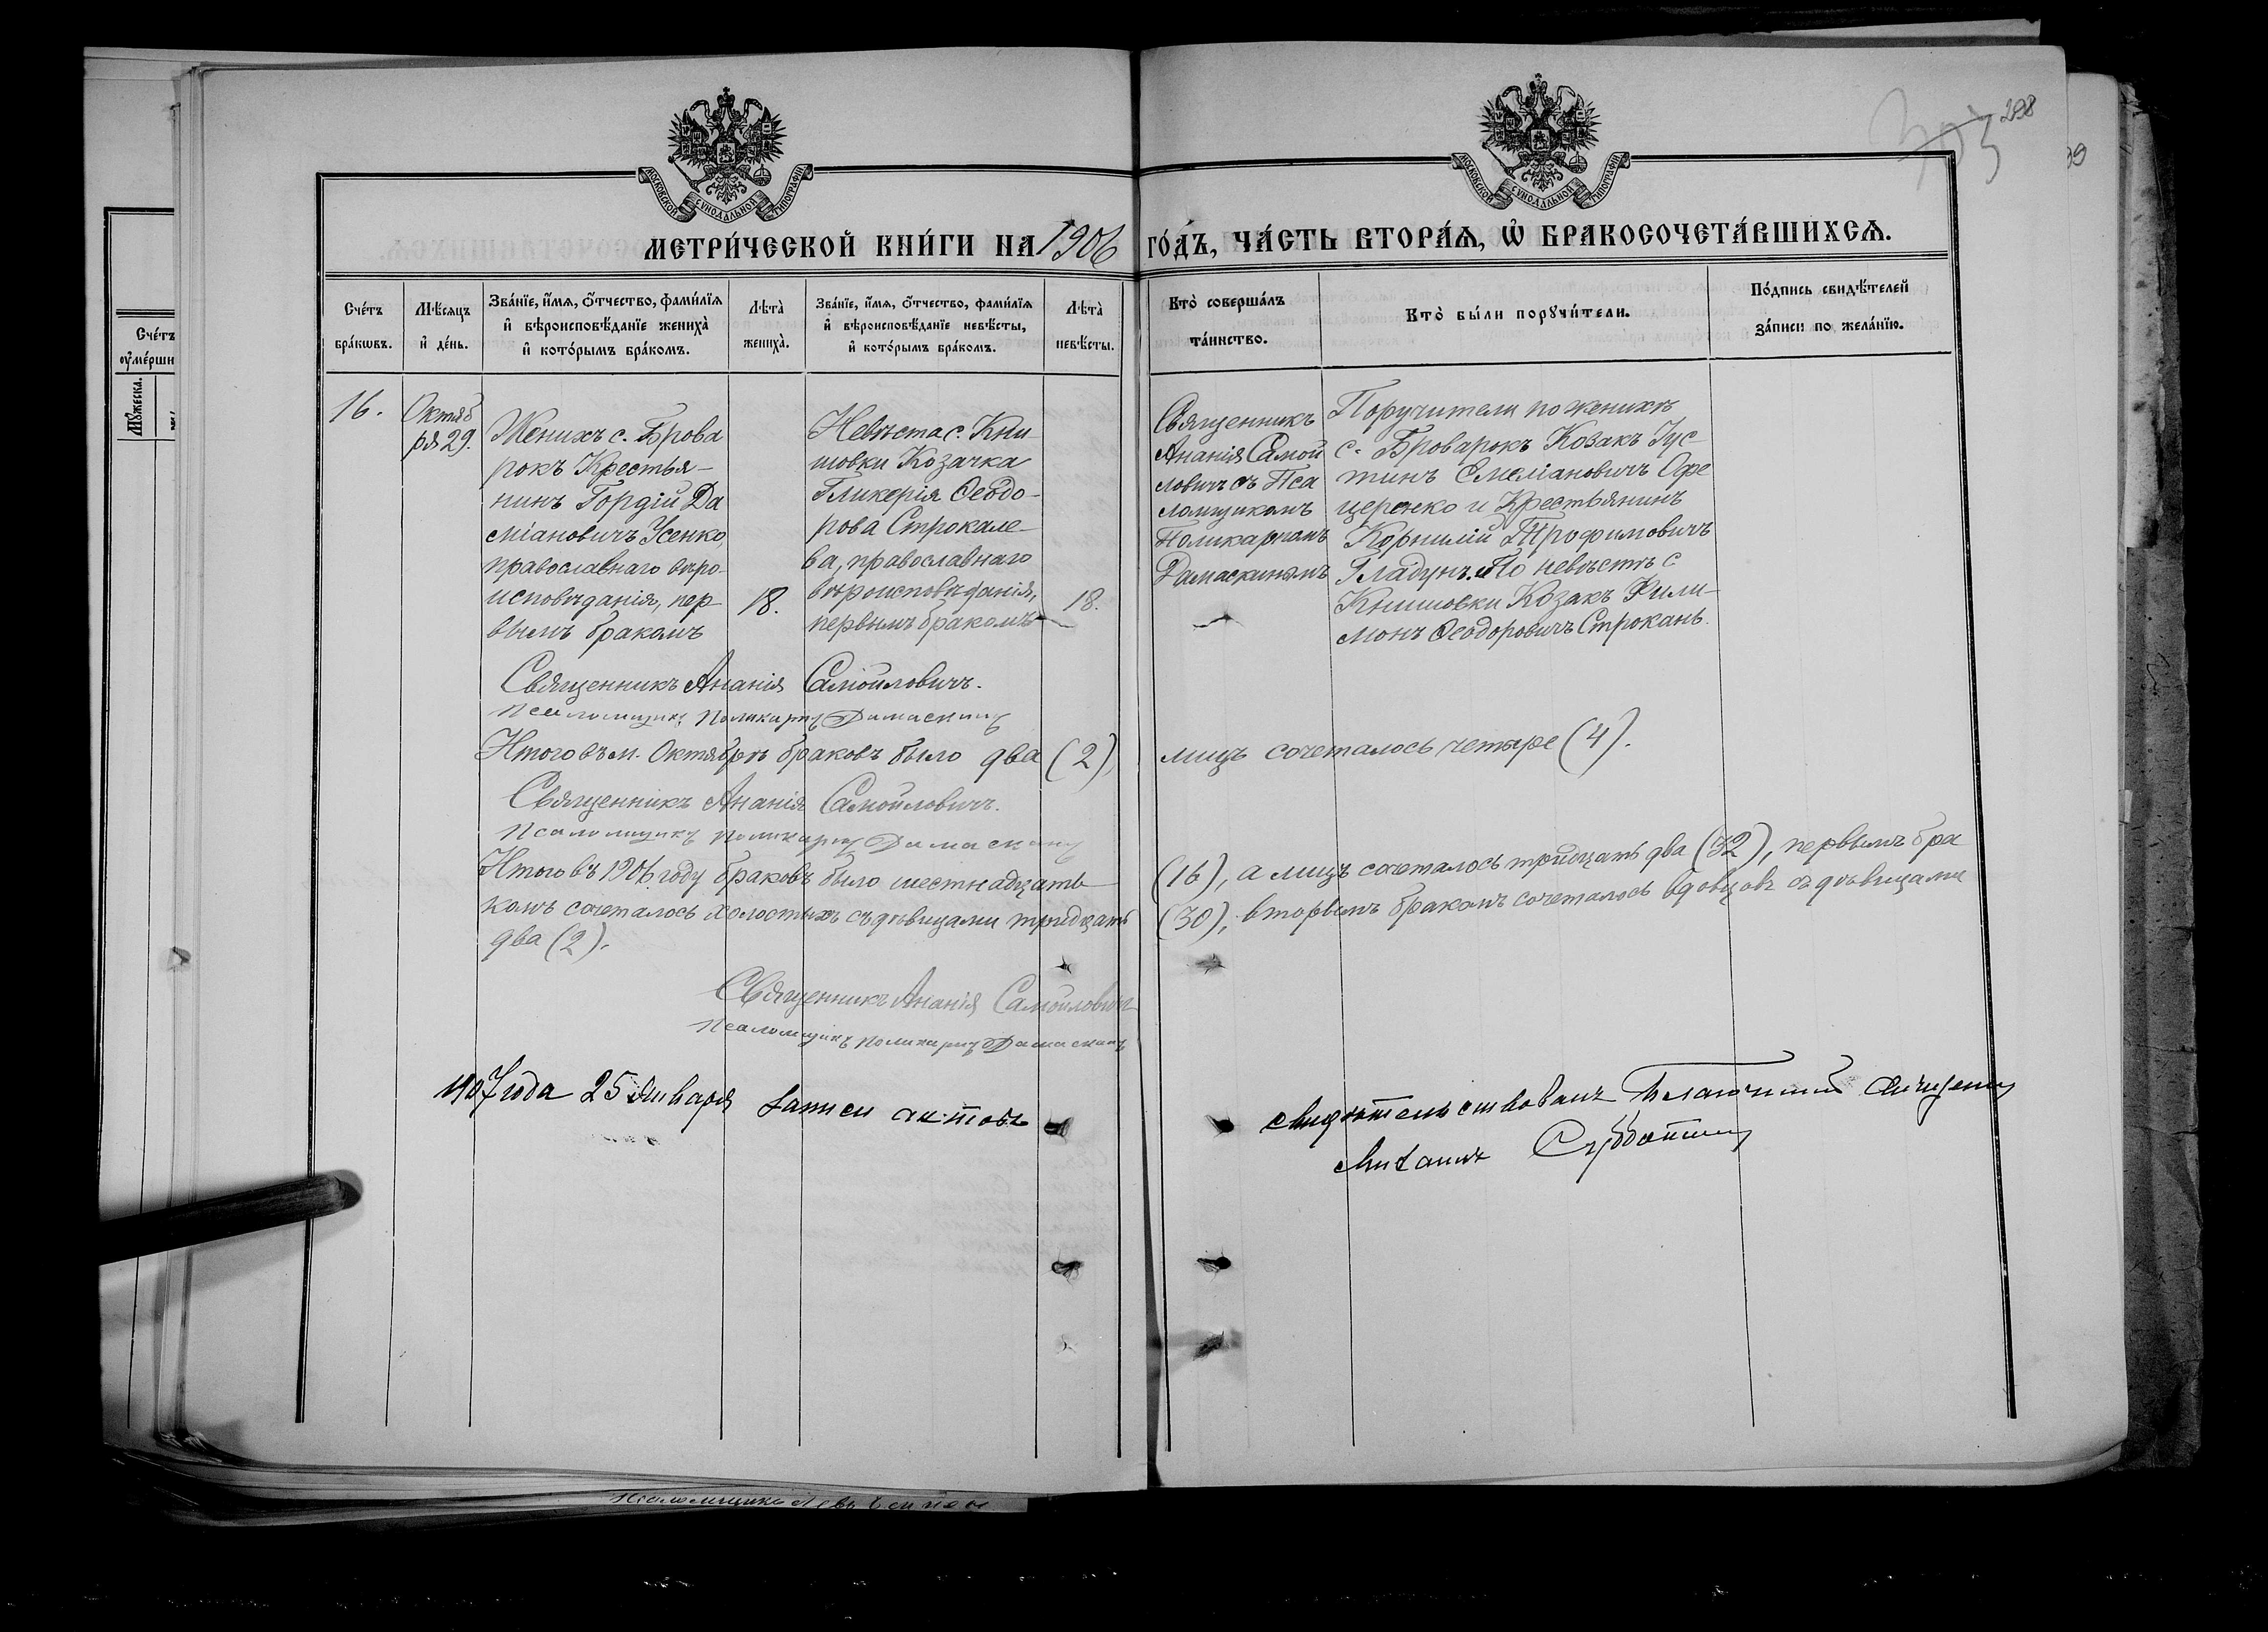 298
305
99
МОСКОВСКОЙ СѴНОДАЛЬНОЙ ТИПОГРАФІИ
МОСКОВСКОЙ СѴНОДАЛЬНОЙ ТИПОГРАФІИ
МЕТРИ́ЧЕСКОЙ КНИ́ГИ НА 1906 ГО́ДЪ, ЧА́СТЬ ВТОРА́Ѧ, Ѽ БРАКОСОЧЕТА́ВШИХСѦ.
Сче́тъ
бра́кѡвъ.
Мѣ́сѧцъ
и҆ де́нь.
Зва́нїе, и҆́мѧ, ѻ҆́тчество, фами́лїѧ
и҆ вѣроисповѣ́данїе жениха̀
и҆ кото́рымъ бра́комъ.
Лѣта̀
жениха̀.
Зва́нїе, и҆́мѧ, ѻ҆́тчество, фами́лїѧ
и҆ вѣроисповѣ́данїе невѣ́сты,
и҆ кото́рымъ бра́комъ.
Лѣта̀
невѣ́сты.
Кто̀ соверша́лъ
та́инство.
Кто̀ бы́ли порꙋчи́тели.
По́дпись свидѣ́телей
за́писи по жела́нїю.
Сче́тъ
ᲂу҆ме́рши
Мꙋ́жеска.
16.
Октяб
ря 29.
Женихъ с. Брова
рокъ Крестья-
нинъ Гордій Да
міановичъ Усенко,
православнаго вѣро-
исповѣданія, пер
вымъ бракомъ
18.
Невѣста с. Кни
шовки Козачка
Гликерія Ѳеодо-
рова Строкале-
ва, православнаго
вѣроисповѣданія,
первымъ бракомъ
18.
Священникъ
Ананія Самой
ловичъ съ Пса
ломщикомъ
Поликарпомъ
Дамаскинымъ
Поручители по женихѣ
с. Броварокъ Козакъ Іус-
тинъ Емеліановичъ Офе
церенко и Крестьянинъ
Корнилій Трофимовичъ
Гладунъ. По невѣстѣ с
Книшовки Козакъ Фили-
монъ Ѳеодоровичъ Строкань.
Священникъ Ананія Самойловичъ.
Псаломщикъ Поликарпъ Дамаскинъ
Итого въ м. Октябрѣ браковъ было два (2), лицъ сочеталось четыре (4).
Священникъ Ананія Самойловичъ.
Псаломщикъ Поликарпъ Дамаскинъ
Итого въ 1906 году браковъ было шестнадцать (16), а лицъ сочеталось тридцать два (32), первымъ бра
комъ сочеталось холостыхъ съ дѣвицами тридцать (30), вторымъ бракомъ сочеталось вдовцовъ съ дѣвицами
два (2).
Священникъ Ананія Самойловичъ
Псаломщикъ Поликарпъ Дамаскинъ
1907 года 25 Января записи актовъ свидѣтельствовалъ Благочинный Священникъ
Псаломщикъ